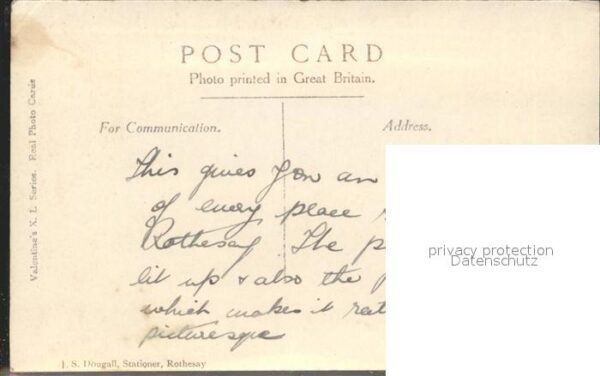 POST CARD
Photo printed in Great Britain.
Valentine's X. L. Series. Real Photo Cards
For Communication.
Address.
This gives you an
of every place
Rothesay The p
lit up & also the
which makes it real
picturesque
privacy protection
Datenschutz
J. S. Dougall, Stationer, Rothesay